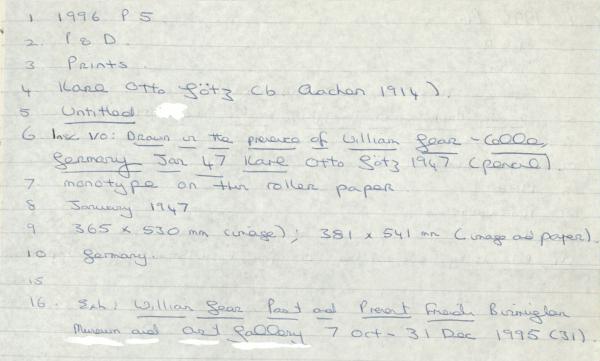 1 1996 P 5
2. P & D.
3 Prints
4 Karl Otto Götz (b Aachen 1914).
5 Untitled
6 Insc v/o: Drawn in the presence of William Gear - Celle,
Germany Jan 47 Karl Otto Götz 1947 (pencil).
7 monotype on thin roller paper
8 January 1947
9 365 x 530 mm (image); 381 x 541 mm (image and paper).
10 Germany.
15
16. Exh: William Gear Past and Present Friends Birmingham
Museum and Art Gallery 7 Oct - 31 Dec 1995 (31).